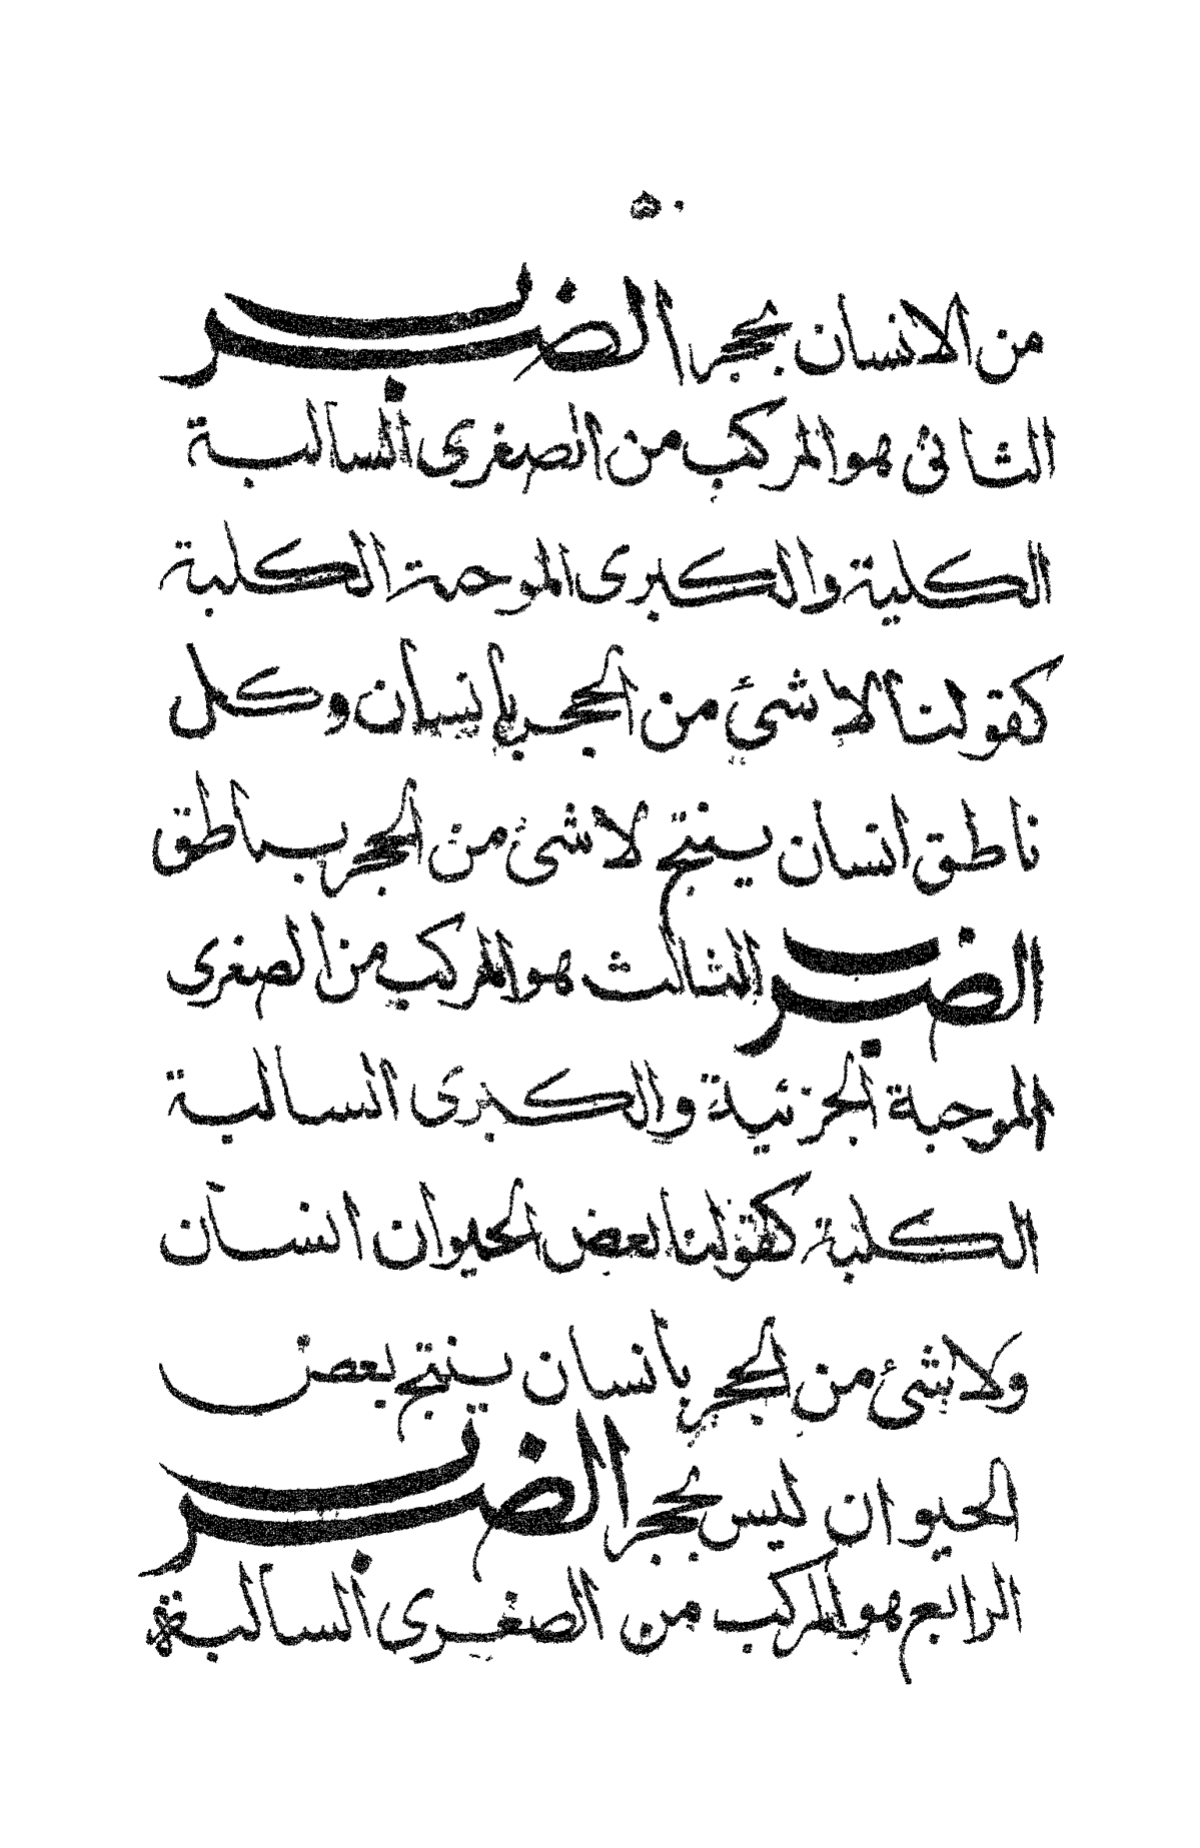 ٥٠
من الانسان بحجر الضرب
الثانى هو المركب من الصغرى السالبة
الكلية والكبرى الموجبة الكلية
كقولنا لا شئ من الحجر بإنسان وكل
ناطق انسان ينتج لا شئ من الحجر بناطق
الضرب الثالث هو المركب من الصغرى
الموجبة الجزئية والكبرى السالبة
الكلية كقولنا بعض الحيوان انسان
ولا شئ من الحجر بانسان ينتج بعض
الحيوان ليس بحجر الضرب
الرابع هو المركب من الصغرى السالبة